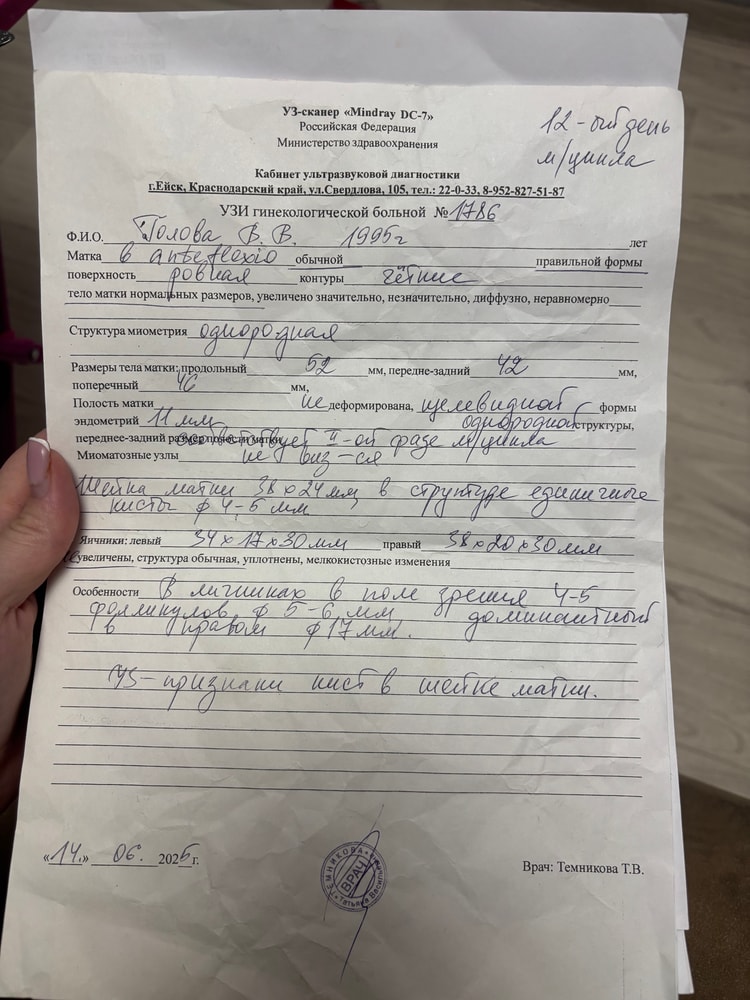 УЗ-сканер «Mindray DC-7»
Российская Федерация
Министерство здравоохранения
12-ый день
м/цикла
Кабинет ультразвуковой диагностики
г.Ейск, Краснодарский край, ул.Свердлова, 105, тел.: 22-0-33, 8-952-827-51-87
УЗИ гинекологической больной №1786
Ф.И.О. Голова В. В. 1995г лет
Матка в anteflexio обычной правильной формы
поверхность ровная контуры чёткие
тело матки нормальных размеров, увеличено значительно, незначительно, диффузно, неравномерно
Структура миометрия однородная
Размеры тела матки: продольный 52 мм, передне-задний 42 мм,
поперечный 46 мм,
Полость матки не деформирована, щелевидной формы
эндометрий 11 мм однородной структуры,
переднее-задний размер полости матки соответствует II-ой фазе м/цикла
Миоматозные узлы не виз-ся
Шейка матки 38х24мм, в структуре единичные
кисты ф 4-5 мм
Яичники: левый 34х17х30мм правый 38х20х30мм
увеличены, структура обычная, уплотнены, мелкокистозные изменения
Особенности В яичниках в поле зрения 4-5
фолликулов ф 5-6 мм доминантный
в правом ф 17мм.
УЗ-признаки кист в шейке матки.
«14.» 06. 2025г.
ТЕМНИКОВА
ВРАЧ
Татьяна
Врач: Темникова Т.В.